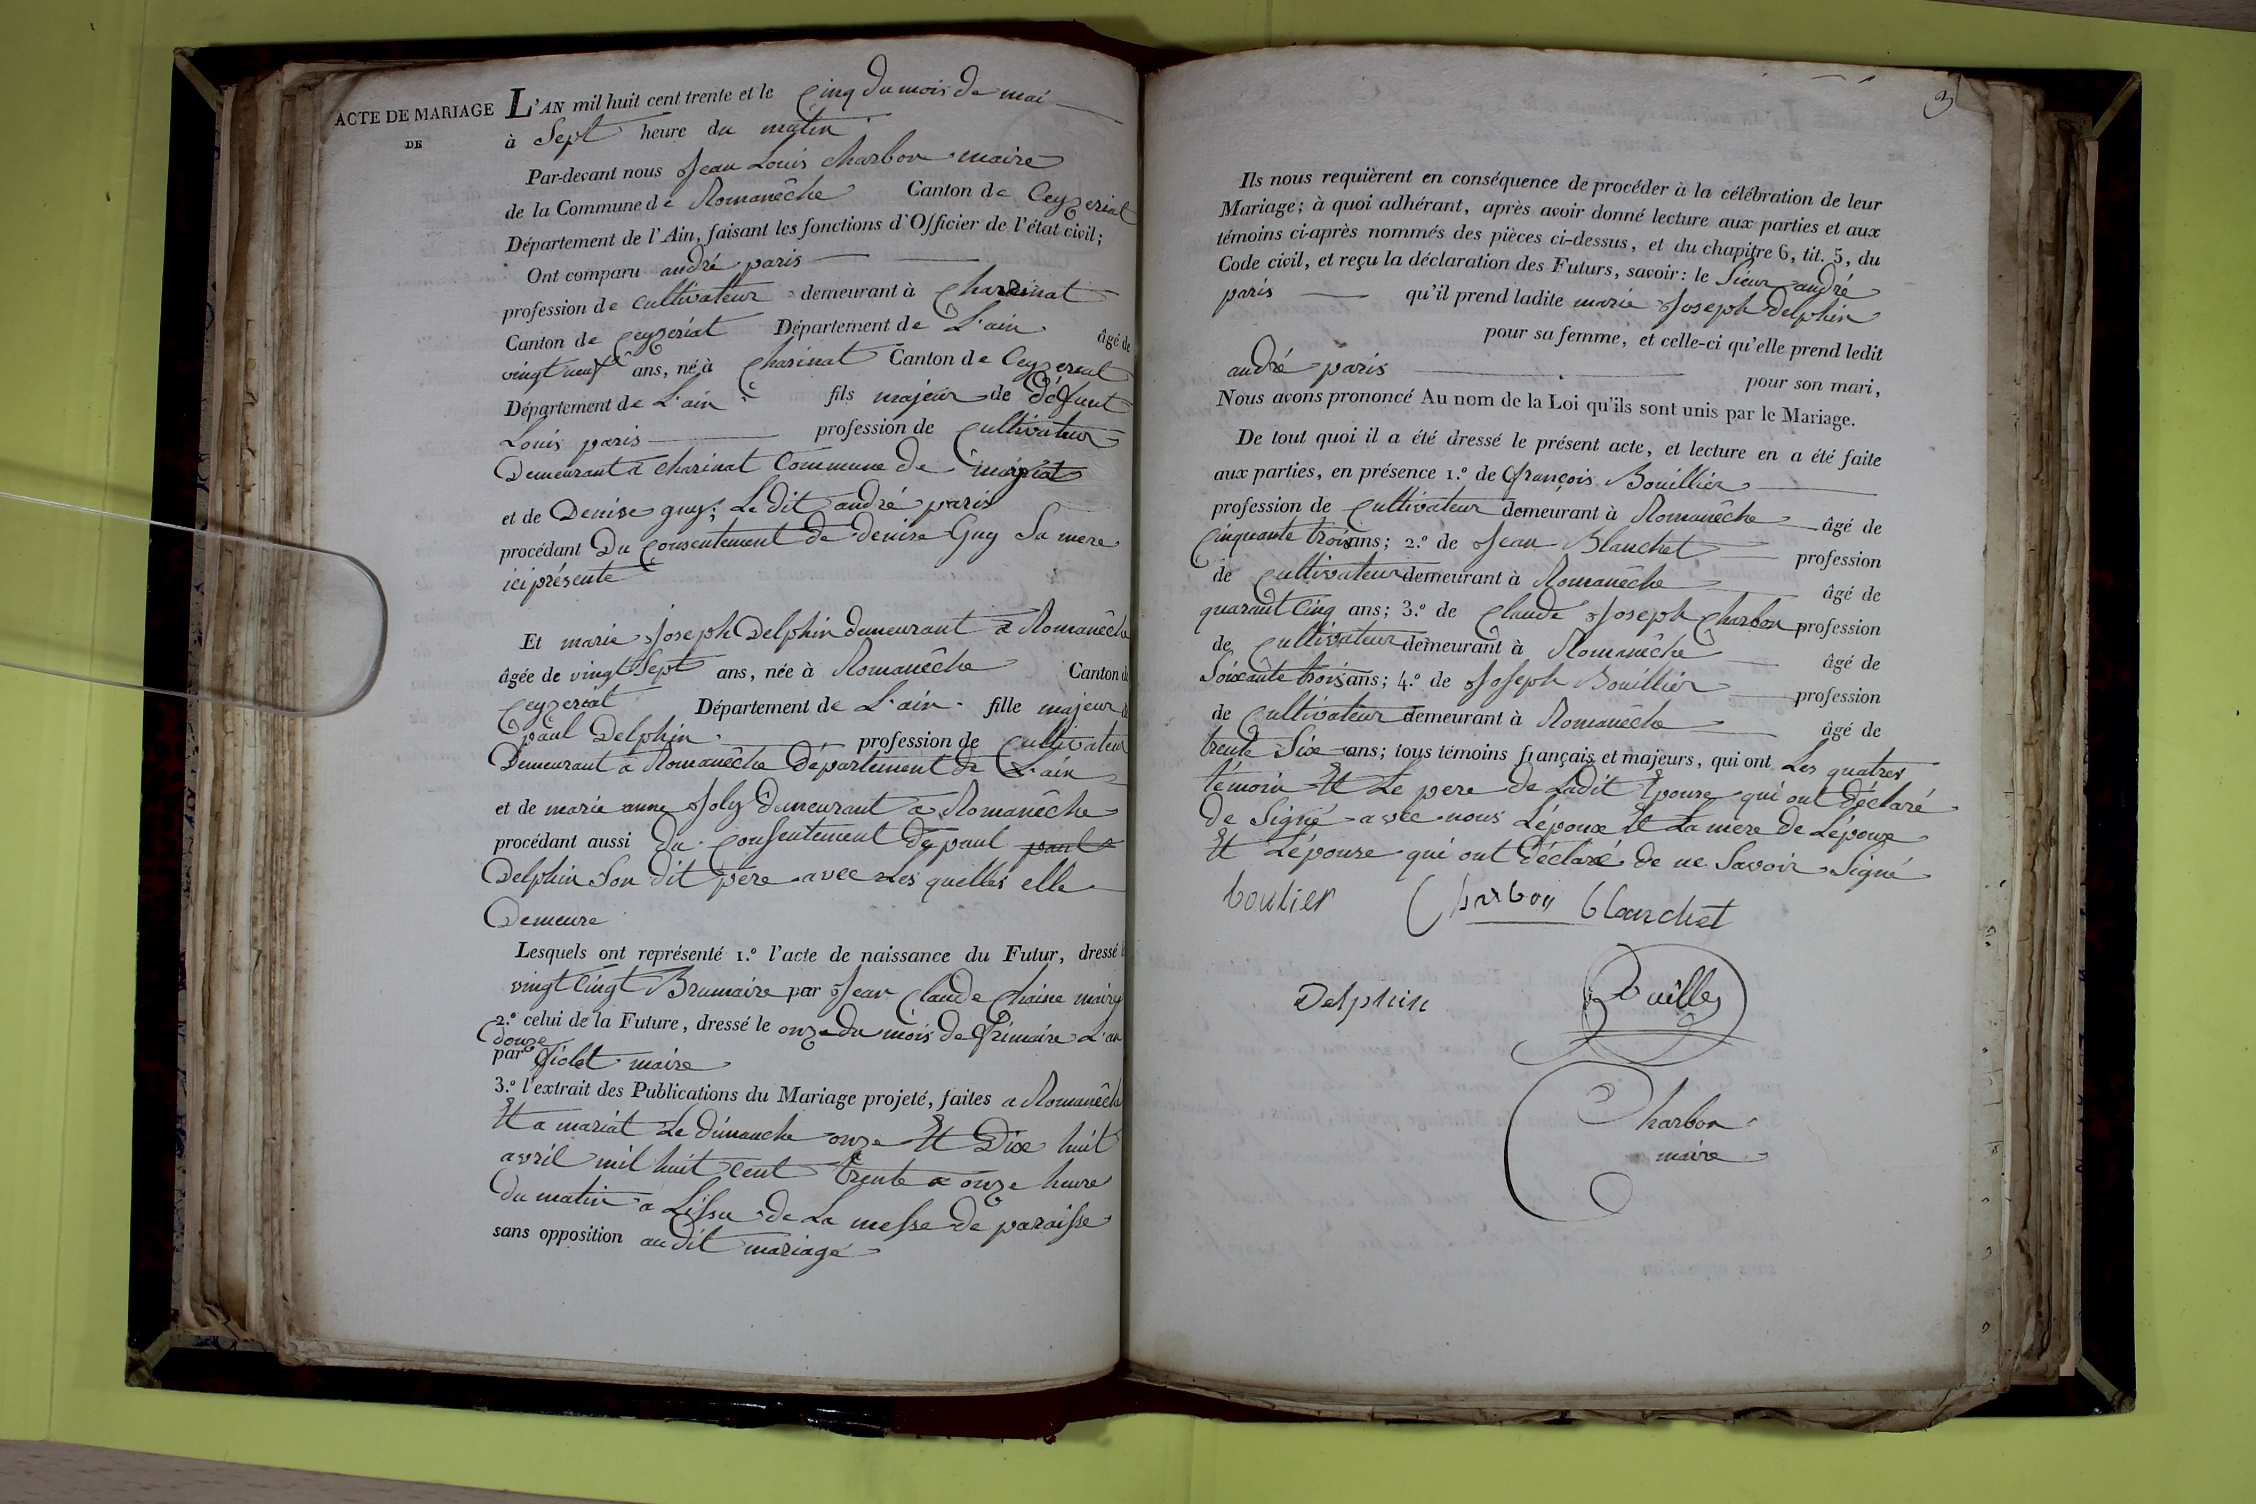 ACTE DE MARIAGE
DE
L'AN mil huit cent trente et le Cinq du mois de mai
à Sept heure du matin
Par-devant nous Jean Louis Charbon maire
de la Commune de Romanêche Canton de Ceyzeriat
Département de l'Ain, faisant les fonctions d'Officier de l'état civil;
Ont comparu andré paris
profession de cultivateur demeurant à Charinat
Canton de Ceyzeriat Département de L'ain âgé de
vingt neuf ans, né à Charinat Canton de Ceyzeriat
Département de L'ain fils majeur de défunt
Louis paris profession de Cultivateur
Demeurant a charinat Commune de
et de Denise guy; Le dit andré paris
procédant Du Consentement de denise Guy Sa mere
ici présente
Et marie Joseph Delphin demeurant a Romanêche
âgée de vingt Sept ans, née à Romanêche Canton de
Ceyzeriat Département de L'ain fille majeur de
paul Delphin profession de Cultivateur
Demeurant a Romanêche Département de L'ain
et de marie anne Joly demeurant a Romanêche
procédant aussi du Consentement de paul paul
Delphin Son dit pere avec Les quelles elle
Demeure
Lesquels ont représenté 1.º l'acte de naissance du Futur, dressé le
vingt Cingt Brumaire par Jean Claude Chaine maire
2.º celui de la Future, dressé le onze du mois de frimaire L'an
douze
par fiolet maire
3.º l'extrait des Publications du Mariage projeté, faites a Romanêche
Et a mariat Le dimanche onze Et Dix huit
avril mil huit Cent trente a onze heure
du matin a Lissu de La messe de paroisse
sans opposition au dit mariage
3
Ils nous requièrent en conséquence de procéder à la célébration de leur
Mariage; à quoi adhérant, après avoir donné lecture aux parties et aux
témoins ci-après nommés des pièces ci-dessus, et du chapitre 6, tit. 5, du
Code civil, et reçu la déclaration des Futurs, savoir: le Sieur andré
paris qu'il prend ladite marie Joseph delphin
pour sa femme, et celle-ci qu'elle prend ledit
andré paris pour son mari,
Nous avons prononcé Au nom de la Loi qu'ils sont unis par le Mariage.
De tout quoi il a été dressé le présent acte, et lecture en a été faite
aux parties, en présence 1.º de françois Bouillier
profession de Cultivateur demeurant à Romanêche âgé de
Cinquante trois ans; 2.º de Jean Blanchet profession
de Cultivateur demeurant à Romanêche âgé de
quarant Cinq ans; 3.º de Claude Joseph Charbon profession
de Cultivateur demeurant à Romanêche âgé de
Soixante trois ans; 4.º de Joseph Bouillier profession
de Cultivateur demeurant à Romanêche âgé de
trente Six ans; tous témoins français et majeurs, qui ont Les quatres
témoin Et Le pere de Ladit Epouse qui ont déclaré
de Signé avec nous L'époux Et La mere de L'époux
Et L'épouse qui ont déclaré de ne Savoir Signé
boulier Charbon blanchet
Delphin
Charbon
maire